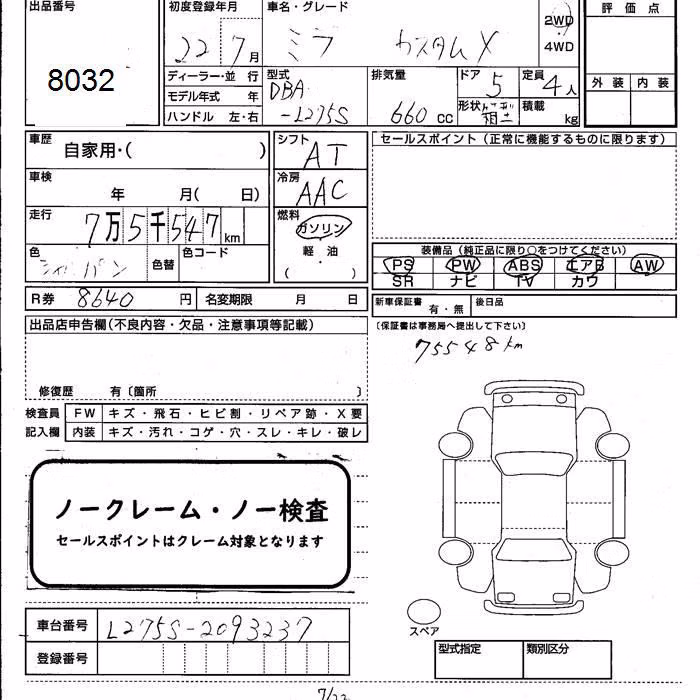 出品番号
8032
初度登録年月
22 7月
車名・グレード
ミラ カスタムX
2WD
4WD
評価点
外装 内装
ディーラー・並行
モデル年式 年
ハンドル 左・右
型式
DBA
-L275S
排気量
660 cc
ドア
5
定員
4人
形状
積載
kg
車歴
自家用・( )
シフト
AT
セールスポイント(正常に機能するものに限ります)
車検
年 月( 日)
冷房
AAC
走行
7万5千547km
燃料
ガソリン
軽・油
( ・ )
色
色替
色コード
装備品(純正品に限り○をつけてください)
PS PW ABS エアB AW
SR ナビ TV カワ
R券 8640円
名変期限 月 日
新車保証書
有・無
後日品
(保証書は事務局へ提出して下さい)
75548km
出品店申告欄(不良内容・欠品・注意事項等記載)
修復歴 有〔箇所 〕
検査員
記入欄
FW キズ・飛石・ヒビ割・リペア跡・X要
内装 キズ・汚れ・コゲ・穴・スレ・キレ・破レ
ノークレーム・ノー検査
セールスポイントはクレーム対象となります
スペア
車台番号 L275S-2093237
登録番号
型式指定 類別区分